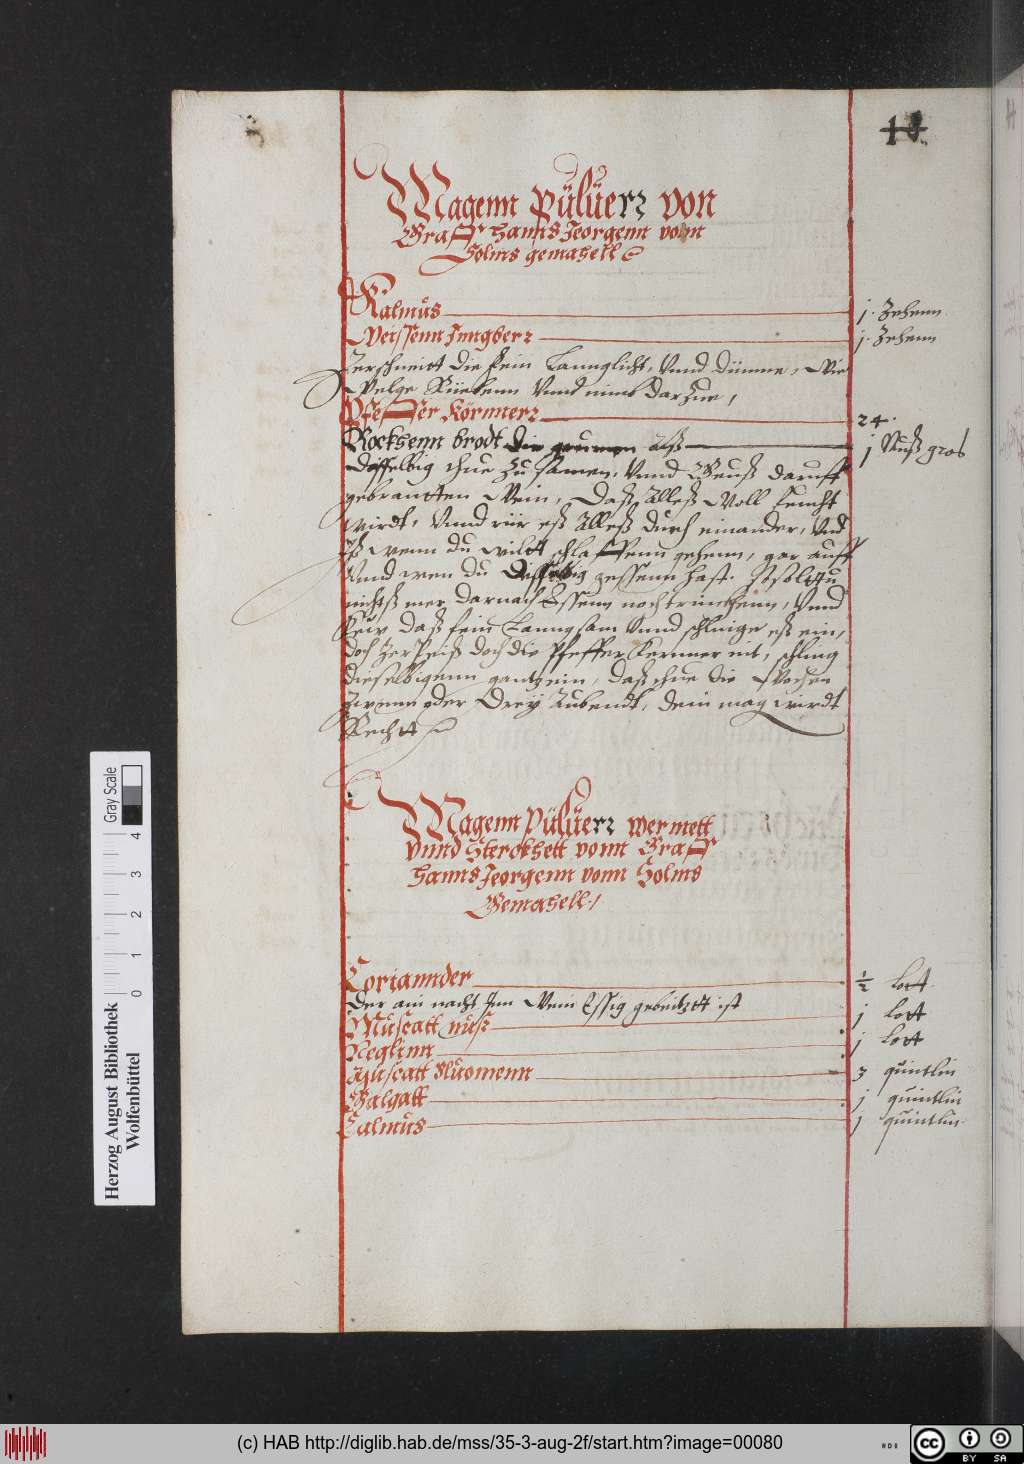 Magenn Pülüerz von
Graff Hanns Jeorgenn vonn
Solms gemahell
Kalmüs j. Zehenn
Weissenn Jnngberz j. Zehenn
Zerschneitt die fein Lannglicht, Vnnd dünne, Wie
Welge Rüebenn Vnnd nimb darzue,
Pfeffer Körnnerz 24.
Rockhenn brodt die groumen alß j Nuß gros
Dasselbig thue zu samen, Vnnd Geuß daruff
gebrantten Wein, Daß alleß Woll feucht
wirdt, Vnnd rür eß alleß durch einander, Vnd
Jß wenn du wildt schlaffenn gehenn, gar auff
Vnnd wen du Dasselbig gessenn hast. So soltu
nichtß mer darnach Essenn noch trinckhenn, Vnnd
Keuw daß fein Lanngsam Vnnd schlinge eß ein,
doch Zerbeiß doch die Pfeffer Kernner nit, schling
dieselbigenn gantz ein, daß thue die Wochen
Zwenn oder Drey Aubendt, dein mag wirdt
Recht
Magenn Pülüerz wermett
Vnnd Sterckhett vonn Graff
Hanns Jeorgenn vonn Solms
Gemahell./
Coriannder ½ Lott
Der ain nacht Jnn Wein Essig gebeitzett ist
Müscatt nüß j Lott
Neglinn j Lott
Müscatt Pluomenn 3 quintlin
Galgatt j quintlin
Calmüs j quintlin
Herzog August Bibliothek
Wolfenbüttel
0 1 2 3 4
Gray Scale
(c) HAB http://diglib.hab.de/mss/35-3-aug-2f/start.htm?image=00080
cc BY SA